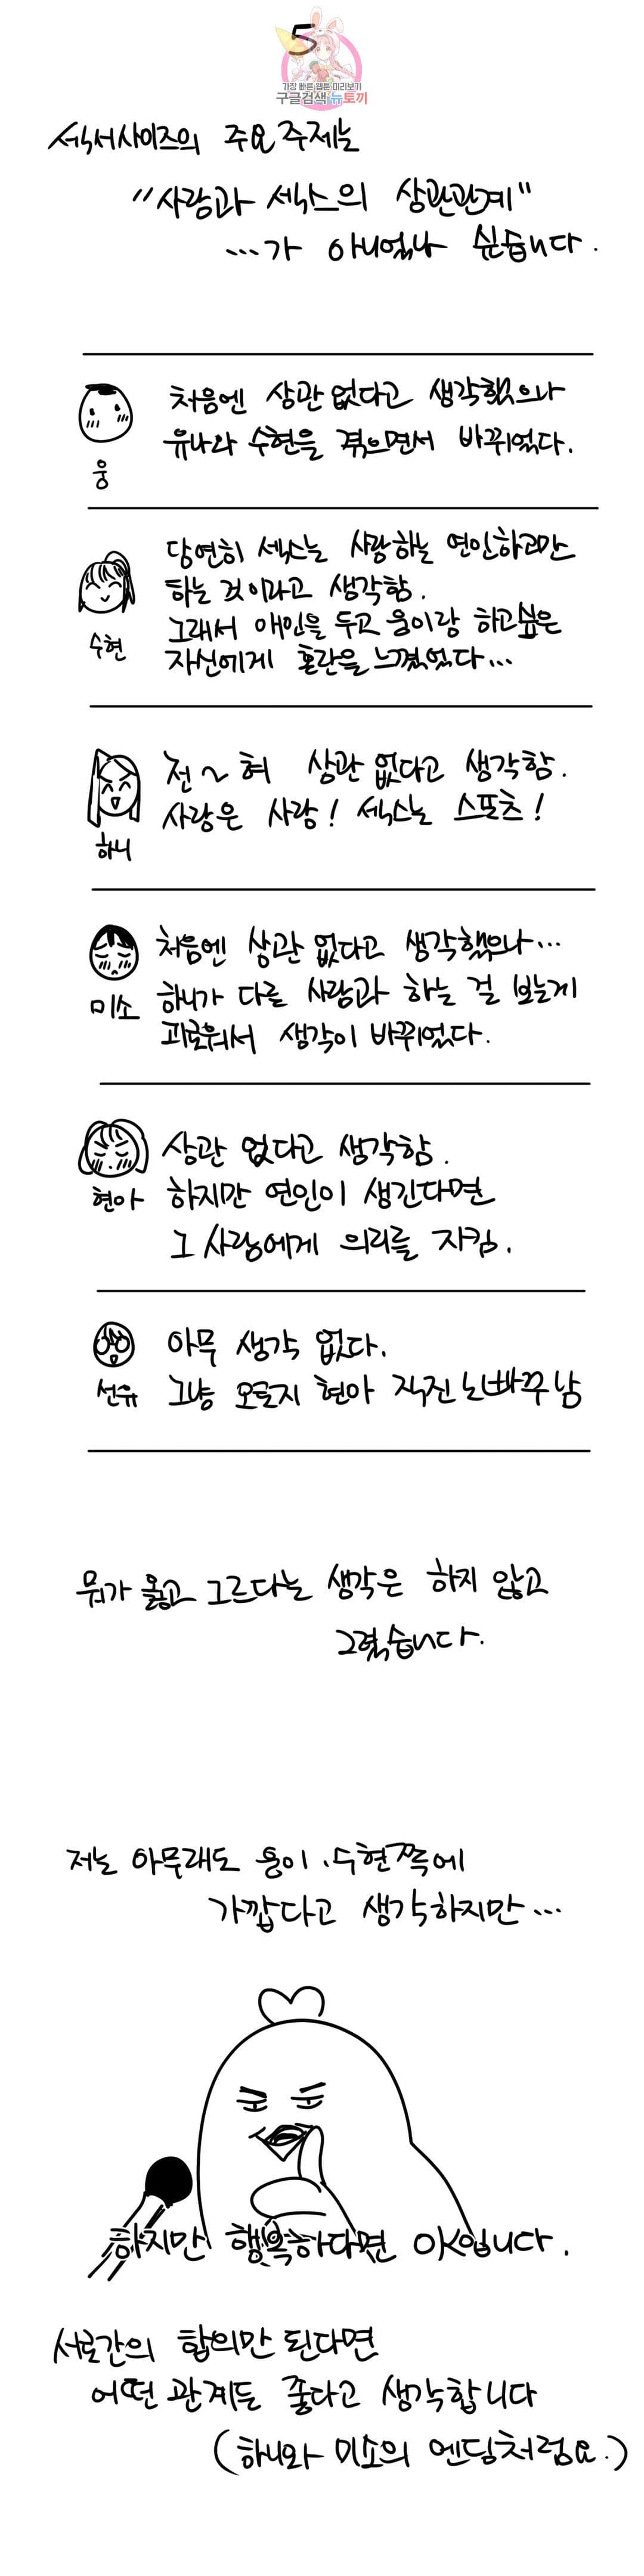 5
가장 빠른 웹툰 미리보기
구글검색 뉴토끼
섹서사이즈의 주요 주제는
"사랑과 섹스의 상관관계"
...가 아니었나 싶습니다.
처음엔 상관 없다고 생각했으나
유나와 수현을 겪으면서 바뀌었다.
웅
당연히 섹스는 사랑하는 연인하고만
하는 것이라고 생각함.
그래서 애인을 두고 웅이랑 하고싶은
자신에게 혼란을 느꼈었다...
수현
전~혀 상관 없다고 생각함.
사랑은 사랑! 섹스는 스포츠!
하니
처음엔 상관 없다고 생각했으나...
하니가 다른 사람과 하는 걸 보는게
괴로워서 생각이 바뀌었다.
미소
상관 없다고 생각함.
하지만 연인이 생긴다면
그 사람에게 의리를 지킴.
현아
아무 생각 없다.
그냥 오로지 현아 직진 노빠꾸남
선유
뭐가 옳고 그르다는 생각은 하지 않고
그렸습니다.
저는 아무래도 웅이.수현쪽에
가깝다고 생각하지만...
하지만 행복하다면 OK입니다.
서로간의 합의만 된다면
어떤 관계든 좋다고 생각합니다
(하니와 미소의 엔딩처럼요.)